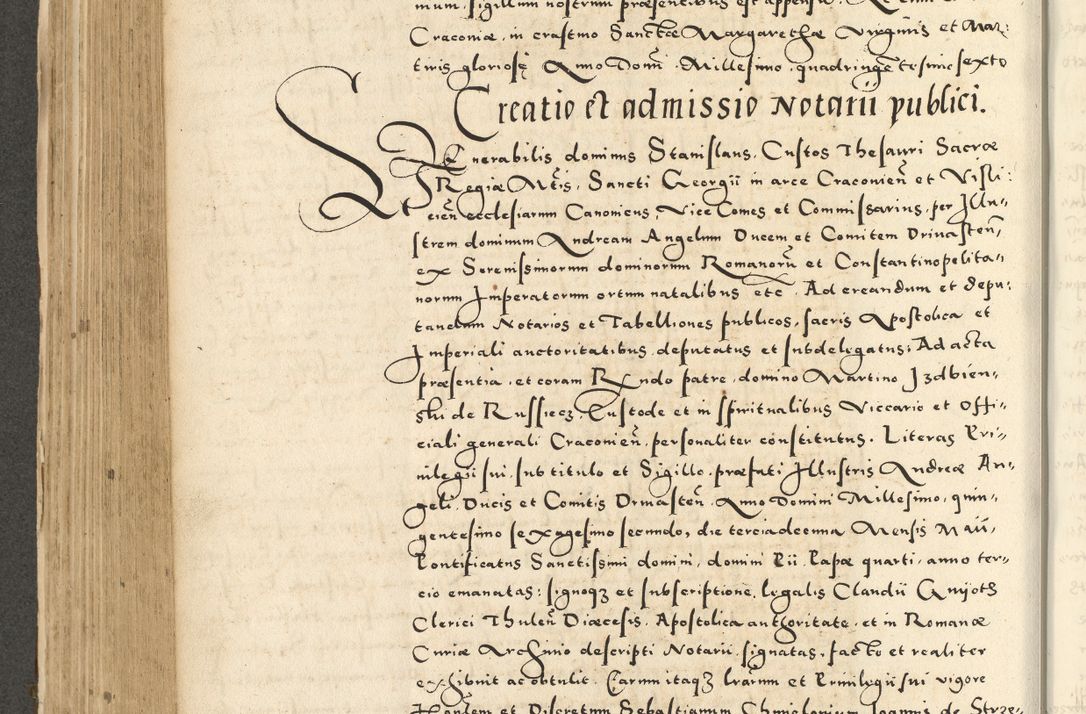 mum, sigillum nostrum præsentibus est appensū.
Craconiæ, in crastino Sanctæ Margarethæ Virginis et Mar:
tiris gloriosę Anno Domī Millesimo quadringētesimosexto
Creatio et admissio Notarii publici.
Venerabilis dominus Stanislaus, Custos Thesauri Sacræ
Regiæ Mtis, Sancti Georgii in arce Craconień et Visli:
cień ecclesiarum Canonicus, Vice Comes et Commissarius, per Illu„
strem dominum Andream Angelum Ducem et Comitem Drivasteń,
ex Serenissimorum dominorum Romanorū et Constantinopolita„
norum Imperatorum ortum natalibus etc. Ad creandum et depu:
tandum Notarios et Tabelliones publicos, sacris Apostolica et
Imperiali auctoritatibus deputatus et subdelegatus: Ad acta
præsentia et coram Rndo patre domino Martino Izdbien„
ski de Russiecz, Custode et in spiritualibus Viccario et Offi„
ciali generali Craconień, personaliter constitutus. Literas Pri„
uilegii sui, sub titulo et Sigillo præfati Illustris Andreæ An„
geli, Ducis et Comitis Drivasteń Anno Domini Millesimo, quin„
gentesimo sexagesimo secundo, die terciadecima Mensis Maii,
Pontificatus Sanctissimi domini, domini Pii Papæ quarti, anno ter„
cio emanatas: signoqz et subscriptione legalis Claudii Guijots
Clerici Thuleń Diæcesis, Apostolica authoritate et in Romanæ
Curiæ Archiuio descripti Notarii, signatas, facto et realiter
exhibuit ac obtulit. Earum itaqz lrarum et Priuilegii sui vigore
et Discretum Sebastianum Joannis de Strze„